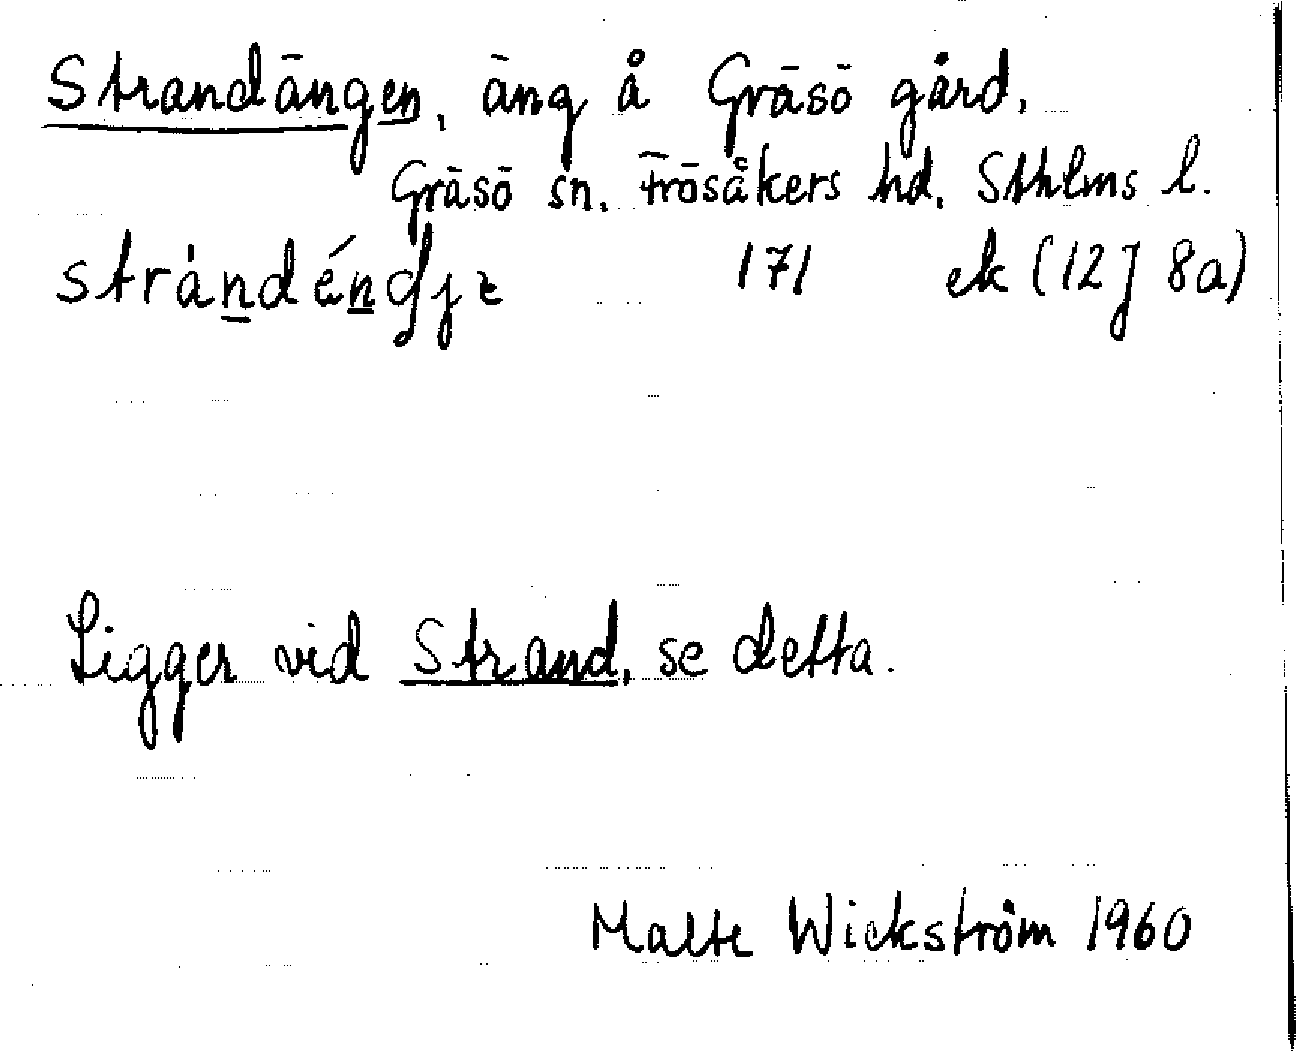 Strandängen, äng å Gräsö gård,
Gräsö sn. Frösåkers hd. Sthlms l.
171 ek (12J 8a)
Ligger vid Strand, se detta.
Malte Wickström 1960